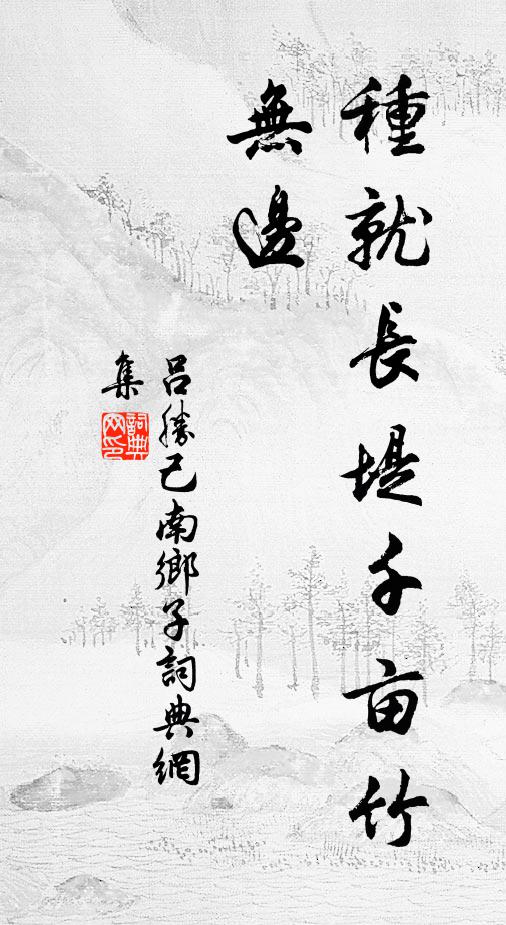 種就長堤千亩竹
無邊
吕勝己南鄉子詞典網
集
詞典
网印